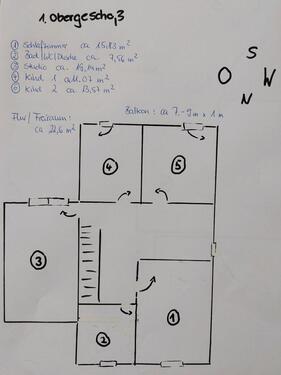 1. Obergeschoß
① Schlafzimmer ca 15,83 m²
② Bad/WC/Dusche ca. 7,56 m²
③ Studio ca. 19,14 m²
④ Kind 1 ca 11.07 m²
⑤ Kind 2 ca 13,57 m²
S
O W
N
Flur/Freiraum:
ca 22,6 m²
Balkon: ca 7-9 m x 1 m
④
⑤
③
①
②